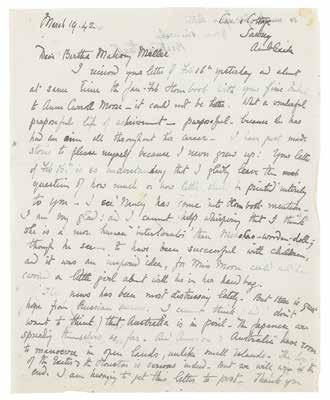 March 19. 42.
Cave Cottage
Sawrey
Ambleside
Dear Bertha Mahony Miller
I received your letter of Feb 16th yesterday and almost
at same time the Jan-Feb Horn book with your fine tribute
to Anne Carroll Moore – it could not be better. What a wonderful
purposeful life of achievement – purposeful because she has
had an aim all throughout her career – I have just made
stories to please myself because I never grew up! Your letter
of Feb 16th is so understanding that I gladly leave the
question of how much or how little should be printed entirely
to you – I see has come into Horn book mention.
I am very glad; and I cannot help whispering that I think
she is a more human than Nicholas – wooden-doll,
though he seems to have been successful with children,
and it was an inspired idea, for Miss Moore could not have
carried a little girl about with her in her hand bag.
The news has been most distressing lately. But there is great
hope from Russian I cannot think and I don't
want to think, that Australia is in peril. The Japanese are
spreading themselves so far. And Americans & Australia have room
to manoeuvre in open lands, unlike small islands. The loss
of the Exeter & the Houston is serious indeed. But we will win in the
end. I am hurrying to get this letter to post. Thank you